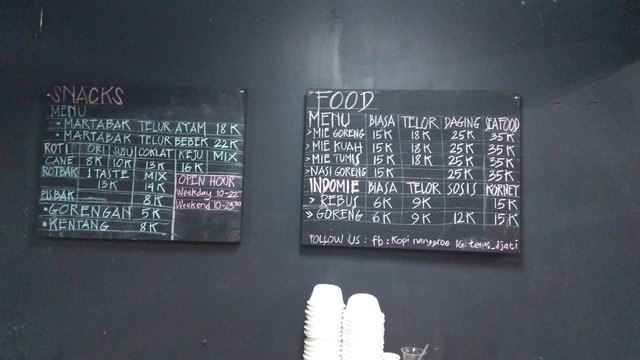 SNACKS
MENU
• MARTABAK TELUR AYAM 18 K
• MARTABAK TELUR BEBEK 22K
ROTI ORI SUSU COKLAT KEJU MIX
CANE 8K 10K 13K 16 K
ROTBAK 1 TASTE MIX
13K 14 K
PISBAK 8 K
• GORENGAN 5 K
• KENTANG 8K
OPEN HOUR
Weekday 10-22
Weekend 10-23.30
FOOD
MENU BIASA TELOR DAGING SEAFOOD
> MIE GORENG 15 K 18 K 25 K 35K
> MIE KUAH 15 K 18 K 25 K 35K
> MIE TUMIS 15 K 18 K 25 K 35K
> NASI GORENG 15 K 25 K 35K
INDOMIE BIASA TELOR SOSIS KORNET
> REBUS 6 K 9 K 15 K
> GORENG 6 K 9 K 12 K 15 K
FOLLOW US : fb : Kopi nanggroe IG: